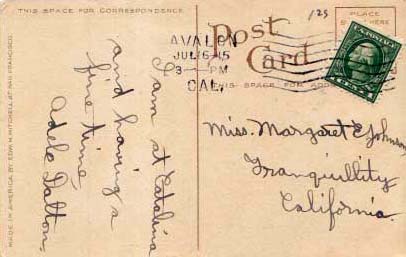 THIS SPACE FOR CORRESPONDENCE.
Post Card
125
PLACE
HERE
AVALON
JUL 6
3 - PM
CAL.
THIS SPACE FOR
Miss. Margaret E. Johnson
Tranquillity
California.
I am at Catalina
and having a
fine time.
Adele Dalton
MADE IN AMERICA BY EDW. H. MITCHELL AT SAN FRANCISCO.